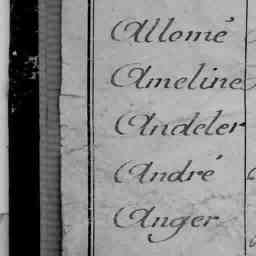 Allomé
Ameline
Andeler
André
Anger